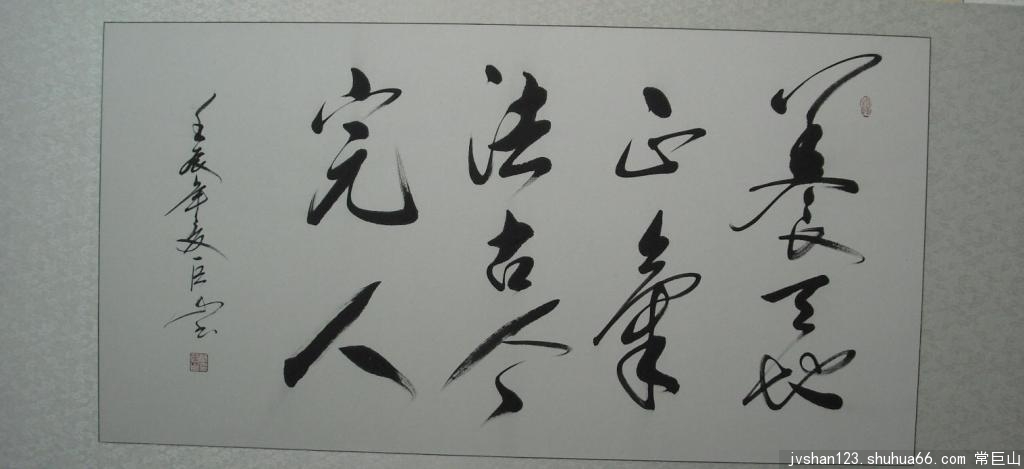 養天地
正氣
法古今
完人
壬辰年夏巨山书
jvshan123.shuhua66.com 常巨山